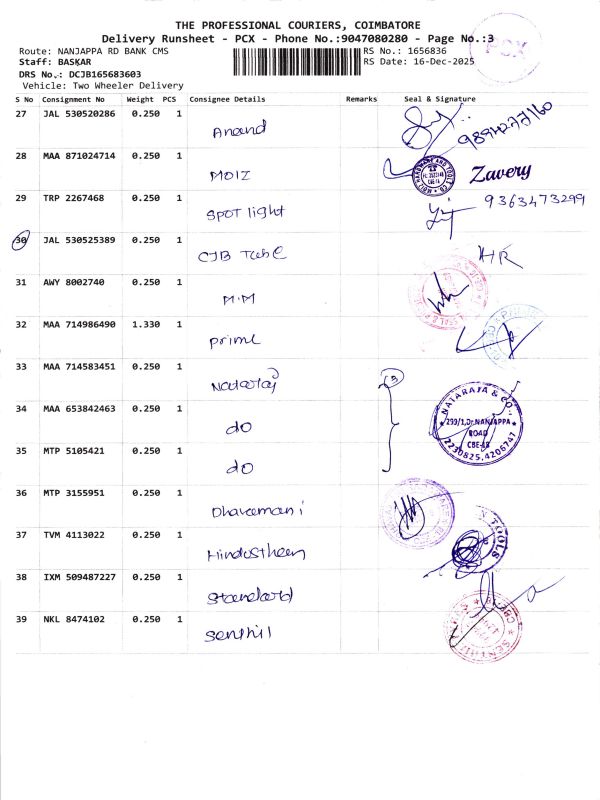 THE PROFESSIONAL COURIERS, COIMBATORE
Delivery Runsheet - PCX - Phone No.:9047080280 - Page No.:3
PCX
Route: NANJAPPA RD BANK CMS
RS No.: 1656836
Staff: BASKAR
RS Date: 16-Dec-2025
DRS No.: DCJB165683603
Vehicle: Two Wheeler Delivery
S No Consignment No Weight PCS Consignee Details Remarks Seal & Signature
27 JAL 530520286 0.250 1 Anand 9894277160
28 MAA 871024714 0.250 1 MOIZ Zavery
29 TRP 2267468 0.250 1 SPOT light 9363473299
30 JAL 530525389 0.250 1 CJB Tube HR
31 AWY 8002740 0.250 1 M.M
32 MAA 714986490 1.330 1 prime
33 MAA 714583451 0.250 1 Nataraj
34 MAA 653842463 0.250 1 do
NATARAJA & CO.,
293/1, Dr. NANJAPPA
ROAD
CBE-18
2230825, 4206747
35 MTP 5105421 0.250 1 do
36 MTP 3155951 0.250 1 Dhavamani
37 TVM 4113022 0.250 1 Hindusthan TOOLS
38 IXM 509487227 0.250 1 Standard
39 NKL 8474102 0.250 1 Senthil